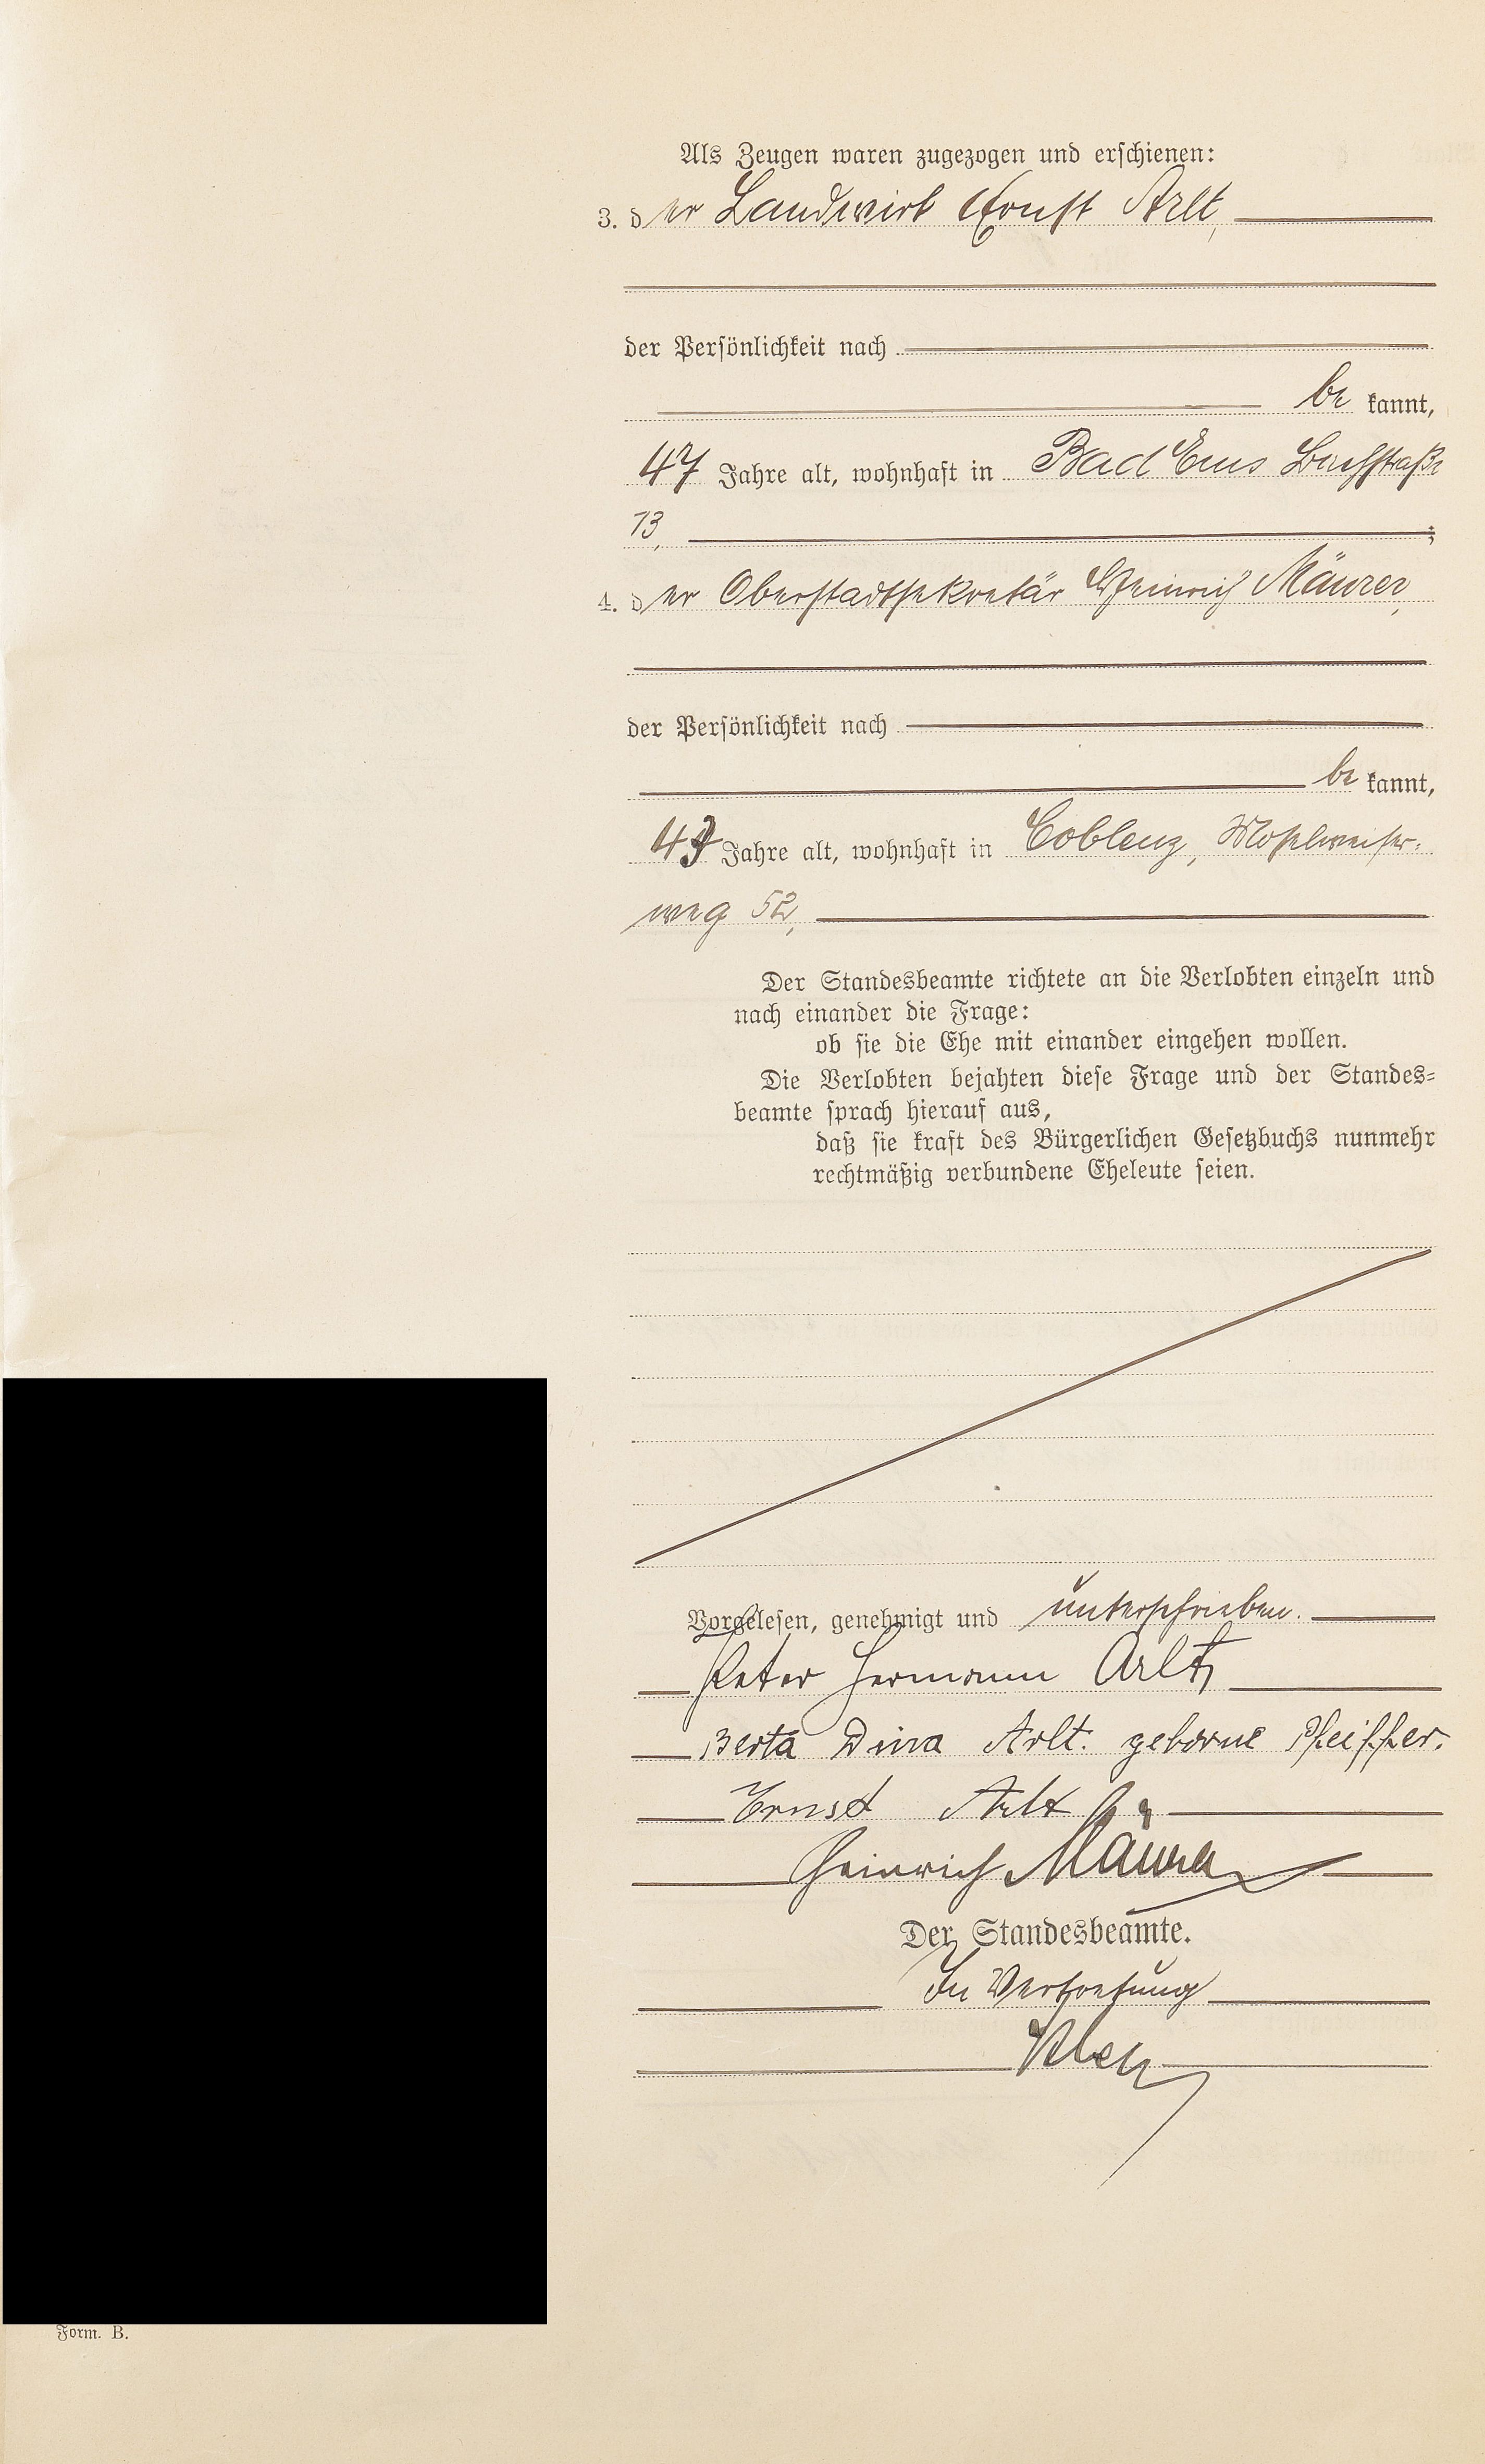 Als Zeugen waren zugezogen und erschienen:
3. der Landwirt Ernst Arlt,
der Persönlichkeit nach
be kannt,
47 Jahre alt, wohnhaft in Bad Ems Bachstraße
13,
4. der Oberstadtsekretär Heinrich Mäurer,
der Persönlichkeit nach
be kannt,
Jahre alt, wohnhaft in Coblenz, Moselweißer-
weg 52,
Der Standesbeamte richtete an die Verlobten einzeln und
nach einander die Frage:
ob sie die Ehe mit einander eingehen wollen.
Die Verlobten bejahten diese Frage und der Standes-
beamte sprach hierauf aus,
daß sie kraft des Bürgerlichen Gesetzbuchs nunmehr
rechtmäßig verbundene Eheleute seien.
Vorgelesen, genehmigt und unterschrieben.
Peter Hermann Arlt
Berta Dina Arlt. geborne Pfeiffer.
Ernst Arlt
Heinrich Mäurer
Der Standesbeamte.
In Vertretung
Form. B.